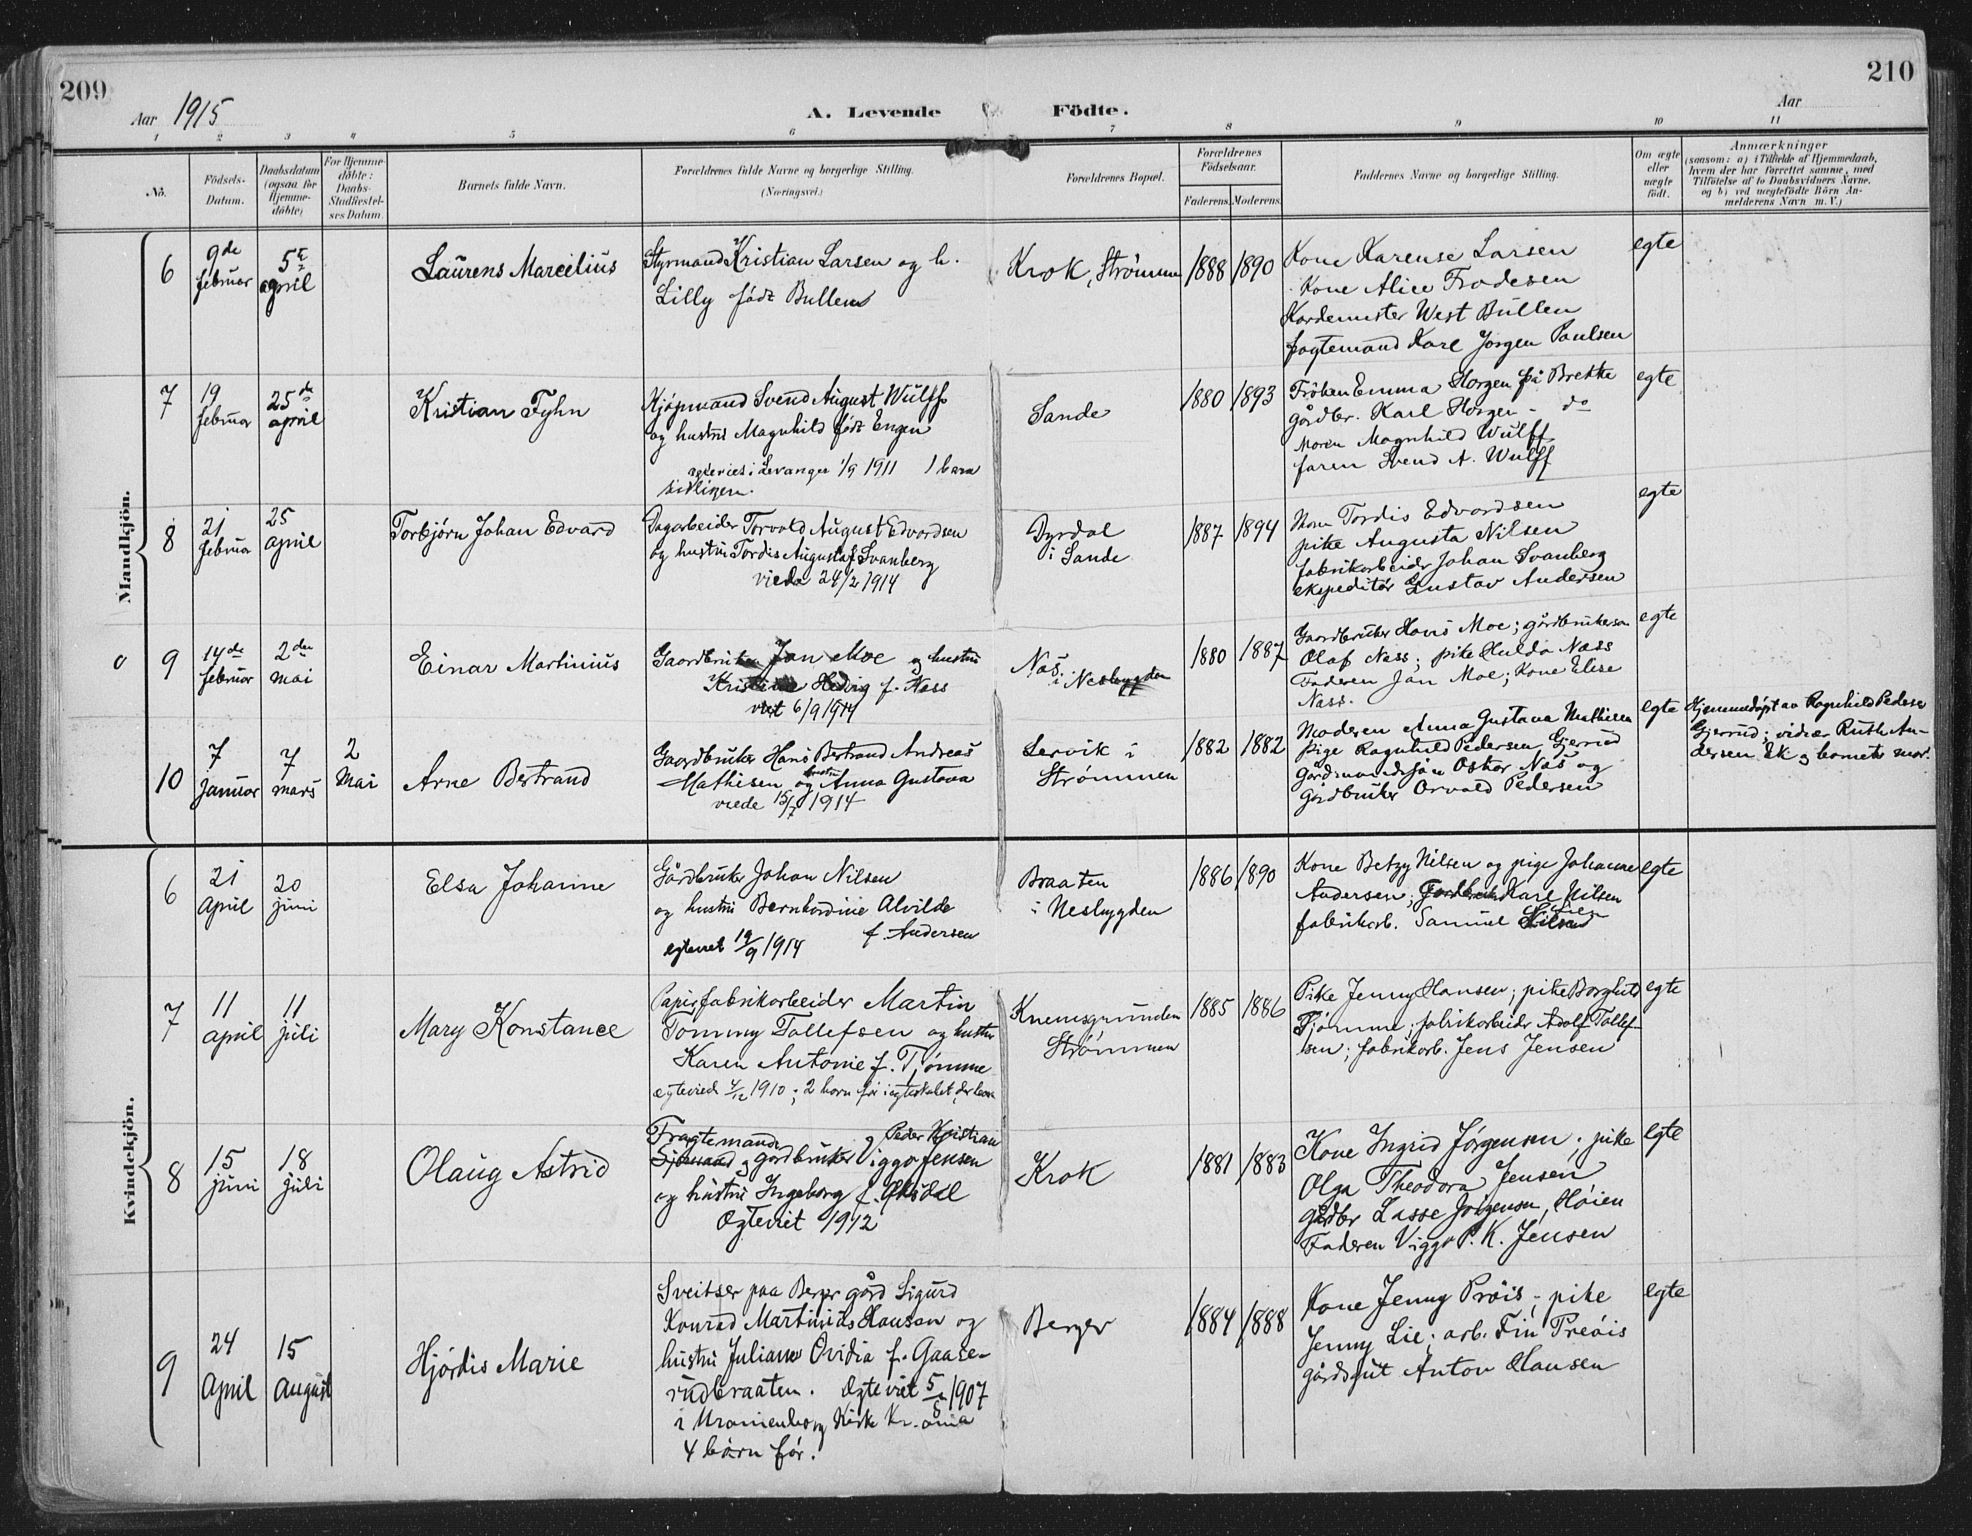 209
210
Aar 1915
A. Levende Födte.
Aar
1 2 3 4 5 6 7 8 9 10 11
No.
Födsels-
Datum.
Daabsdatum
(ogsaa for
Hjemme-
döbte)
For Hjemme-
döbte:
Daabs-
Stadfæstel-
ses Datum.
Barnets fulde Navn.
Forældrenes fulde Navne og borgerlige Stilling.
(Næringsvei.)
Forældrenes Bopæl.
Forældrenes
Födselsaar.
Faderens. Moderens.
Faddernes Navne og borgerlige Stilling.
Om ægte
eller
uægte
födt.
Anmærkninger
(saasom: a) i Tilfælde af Hjemmedaab,
hvem der har forrettet samme, med
Tilföielse af to Daabsvidners Navne,
og b) ved uægtefödte Börn An-
melderens Navn m. V.)
Mandkjön.
6
9de
februar
5te
april
Laurens Marcelius
Styrmand Kristian Larsen og h.
Lilly født Bullen
Krok, Strømmen
1888 1890
Kone Karense Larsen
Kone Alice Frodesen
West Bullen
fragtemand Karl Jørgen Paulsen
egte
7
19
februar
25de
april
Kristian Fyhn
Kjøpmand Svend August Wulff
og hustru Magnhild født Engen
i Levanger 1/9 1911 1 barn
tidligere.
Sande
1880 1893
Frøken Emma Horgen på Brekke
gårdbr. Karl Horgen - do
Moren Magnhild Wulff
faren Svend A. Wulff
egte
8
21
februar
25
april
Torbjørn Johan Edvard
Dagarbeider Torvald August Edvardsen
og hustru Tordis Augusta f. Svanberg
viede 24/2 1914
Dyrdal
i Sande
1887 1894
Moren Tordis Edvardsen
pike Augusta Nilsen
fabrikarbeider Johan Svanberg
ekspeditør Gustav Andersen
egte
o
9
14de
februar
2den
mai
Einar Martinius
Gaardbruker Jan Moe og hustru
Kristine Hedvig f. Næss
viet 6/9 1914
Nås i Nesbygden
1880 1887
Gaardbruker Hans Moe; gårdbrukersøn
Olaf Næss; pike Hulda Næss
Faderen Jan Moe; Kone Elise
Næss.
egte
10
7
januar
7
mars
2
Mai
Arne Bertrand
Gaardbruker Hans Bertrand Andreas
Mathisen og hustru Anna Gustava
viede 15/7 1914
Lervik i
Strømmen
1882 1882
Moderen Anna Gustava Mathisen
pige Ragnhild Pedersen Gjerrud
gårdmandssøn Oskar Nås og
Gårdbruker Orvald Pedersen
egte
Hjemmedøpt av Ragnhild Pedersen
Gjerrud; vidner Ruth An-
dersen Ek og barnets mor.
Kvindekjön.
6
21
April
20
juni
Elsa Johanne
Gårdbruker Johan Nilsen
og hustru Bernhardine Alvilde
f. Andersen
egteviet 19/9 1914
Braaten
i Nesbygden
1886 1890
Kone Betzy Nilsen og pige Johanne
Andersen; Karl Nilsen
fabrikarb. Samuel
egte
7
11
april
11
juli
Mary Konstance
Papirfabrikarbeider Martin
Tommy Tollefsen og hustru
Karen Antonie f. Tjømme
egteviet 4/12 1910; 2 barn før i egteskabet,
Knemsgrunden
Strømmen
1885 1886
Pike Jenny Hansen; pike Borghild
Tjømme; fabrikarbeider Adolf Tollef-
sen; fabrikarb. Jens Jensen
egte
8
15
juni
18
juli
Olaug Astrid
Fragtemand Peder Kristian
Sjømand og gårdbruker Viggo Jensen
og hustru Ingeborg f. Øksdal
Ægteviet 1912
Krok
1881 1883
Kone Ingrid Jørgensen; pike
Olga Theodora Jensen
gårdbr Lasse Jørgensen, Høien
Faderen Viggo P. K. Jensen
egte
9
24
April
15
August
Hjørdis Marie
Sveitser paa Berger gård Sigurd
Konrad Martinius Hansen og
hustru Juliane Ovidia f. Gaase-
rudbraaten. Ægteviet 5/8 1907
i Uranienborg Kirke Kr.ania
4 børn før.
Berger
1884 1888
Kone Jenny Prøis; pike
Jenny Lie; arb. Fin Preøis
gårdsgut Anton Hansen
egte